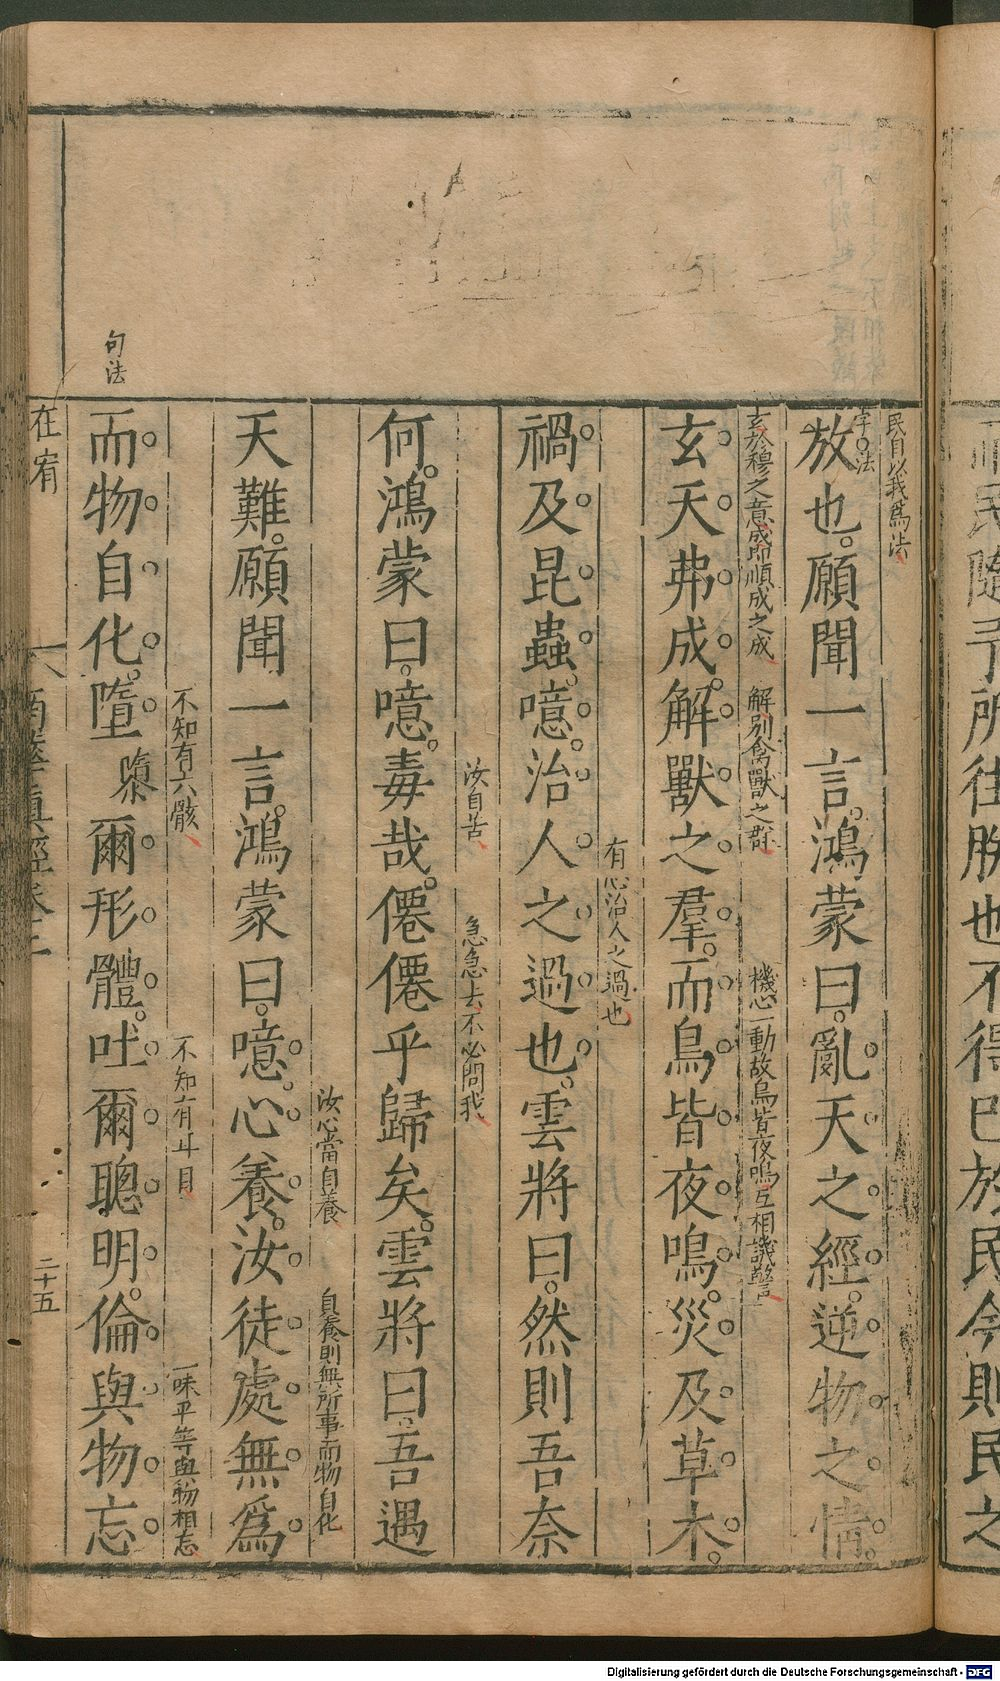 民自以我爲法
字法
放也。願聞一言。鴻蒙曰。亂天之經。逆物之情。
玄於穆之意成卽順成之成 解別禽獸之群 機心一動故鳥皆夜鳴互相譏警
玄天弗成。解獸之羣。而鳥皆夜鳴。災及草木。
禍及昆蟲。噫。治人之過也。雲將曰。然則吾奈
有心治人之過也
何。鴻蒙曰。噫。毒哉。僊僊乎歸矣。雲將曰。吾遇
汝自苦 急急去不必問我
天難。願聞一言。鴻蒙曰。噫。心養。汝徒處無爲
汝心當自養 自養則無所事而物自化
而物自化。墮隳爾形體。吐爾聰明。倫與物忘
不知有六骸 不知有耳目 一味平等與物相忘
句法
在宥
南華眞經卷三
二十五
Digitalisierung gefördert durch die Deutsche Forschungsgemeinschaft - DFG
民之
隨予所往往朕也不得已於民今則民之